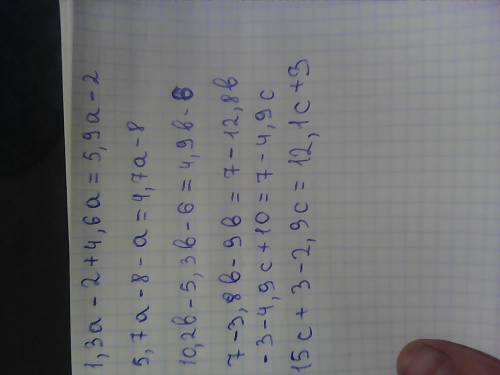 1,3a-2+4,6a=5,9a-2
5,7a-8-a=4,7a-8
10,2b-5,3b-6=4,9b-6
7-3,8b-9b=7-12,8b
-3-4,9c+10=7-4,9c
15c+3-2,9c=12,1c+3